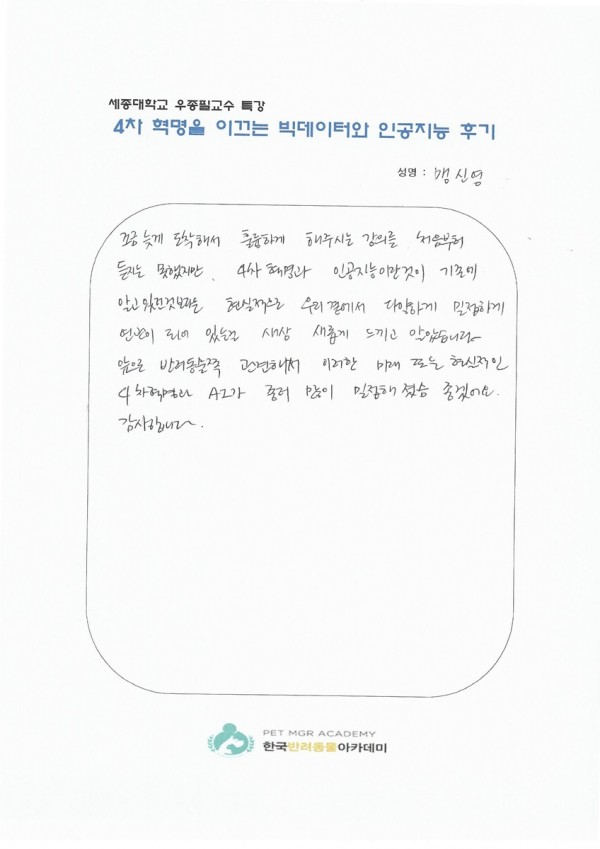 세종대학교 우종필교수 특강
4차 혁명을 이끄는 빅데이터와 인공지능 후기
성명 : 맹신영
조금 늦게 도착해서 훌륭하게 해주시는 강의를 처음부터
듣지는 못했지만 4차 혁명과 인공지능이란것이 기존에
알고 있던것보다는 현실적으로 우리곁에서 다양하게 밀접하게
연관이 되어 있는걸 새삼 새롭게 느끼고 알았습니다
앞으로 반려동물쪽 관련해서 이러한 미래 또는 혁신적인
4차혁명과 AI가 좀더 많이 밀접해 졌음 좋겠어요.
감사합니다.
PET MGR ACADEMY
한국반려동물아카데미